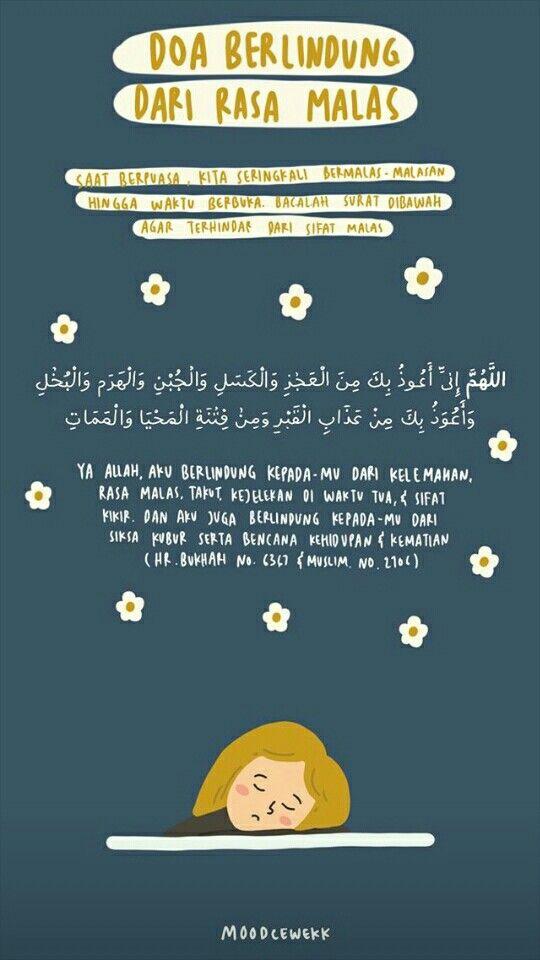 DOA BERLINDUNG
DARI RASA MALAS
SAAT BERPUASA, KITA SERINGKALI BERMALAS-MALASAN
HINGGA WAKTU BERBUKA. BACALAH SURAT DIBAWAH
AGAR TERHINDAR DARI SIFAT MALAS
اللَّهُمَّ إِنِّى أَعُوذُ بِكَ مِنَ الْعَجْزِ وَالْكَسَلِ وَالْجُبْنِ وَالْهَرَمِ وَالْبُخْلِ
وَأَعُوذُ بِكَ مِنْ عَذَابِ الْقَبْرِ وَمِنْ فِتْنَةِ الْمَحْيَا وَالْمَمَاتِ
YA ALLAH, AKU BERLINDUNG KEPADA-MU DARI KELEMAHAN,
RASA MALAS, TAKUT, KEJELEKAN DI WAKTU TUA, & SIFAT
KIKIR. DAN AKU JUGA BERLINDUNG KEPADA-MU DARI
SIKSA KUBUR SERTA BENCANA KEHIDUPAN & KEMATIAN
(HR. BUKHARI NO. 6367 & MUSLIM. NO. 2706)
MOODCEWEKK